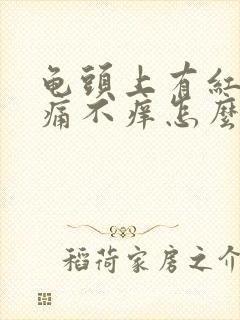 龟頭上有紅
痛不痒怎麼
稻荷家房之介